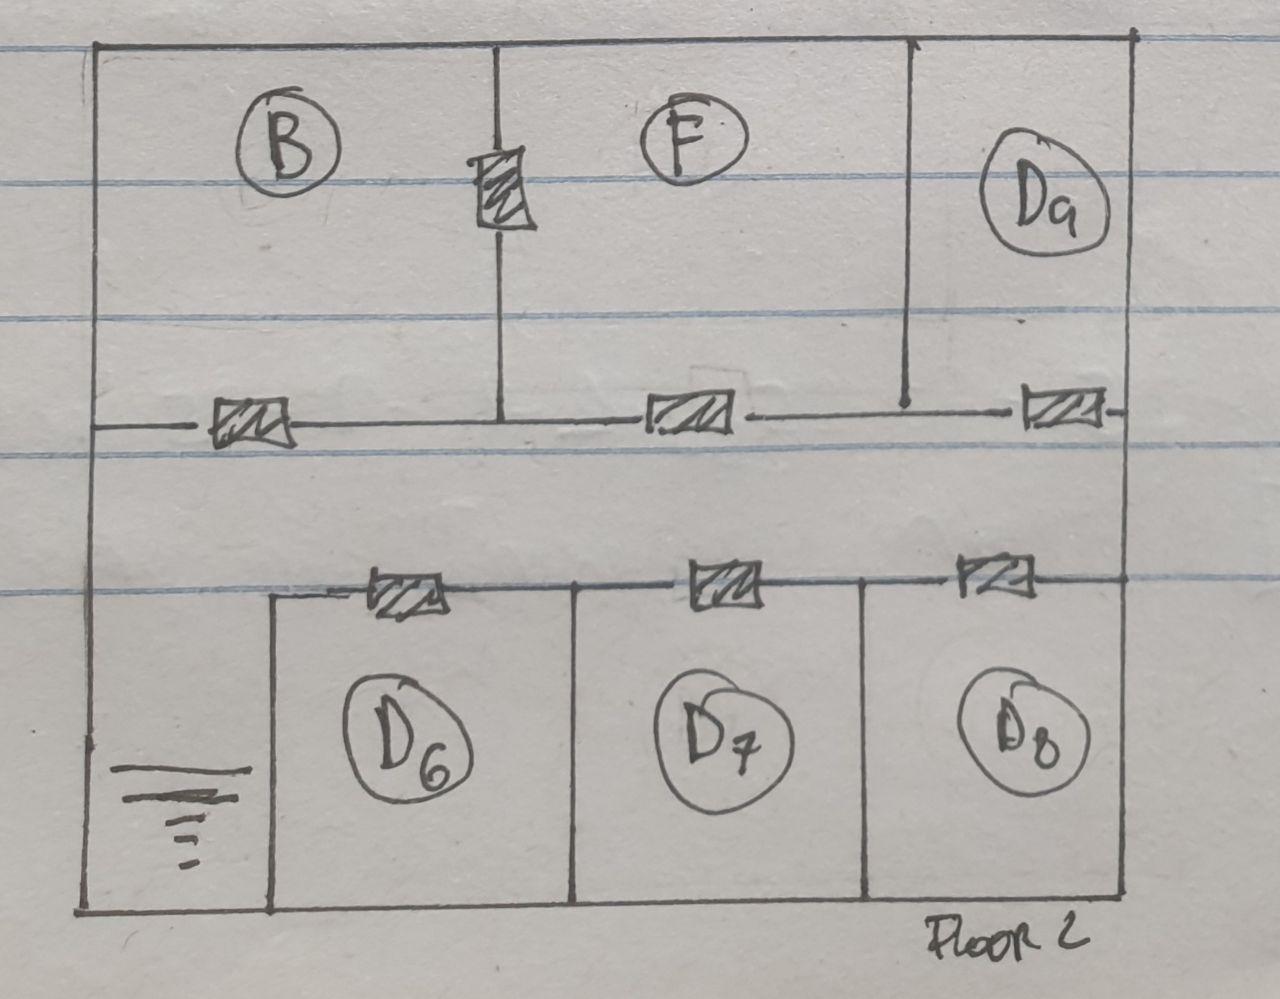 B
F
D9
D6
D7
D8
Floor 2